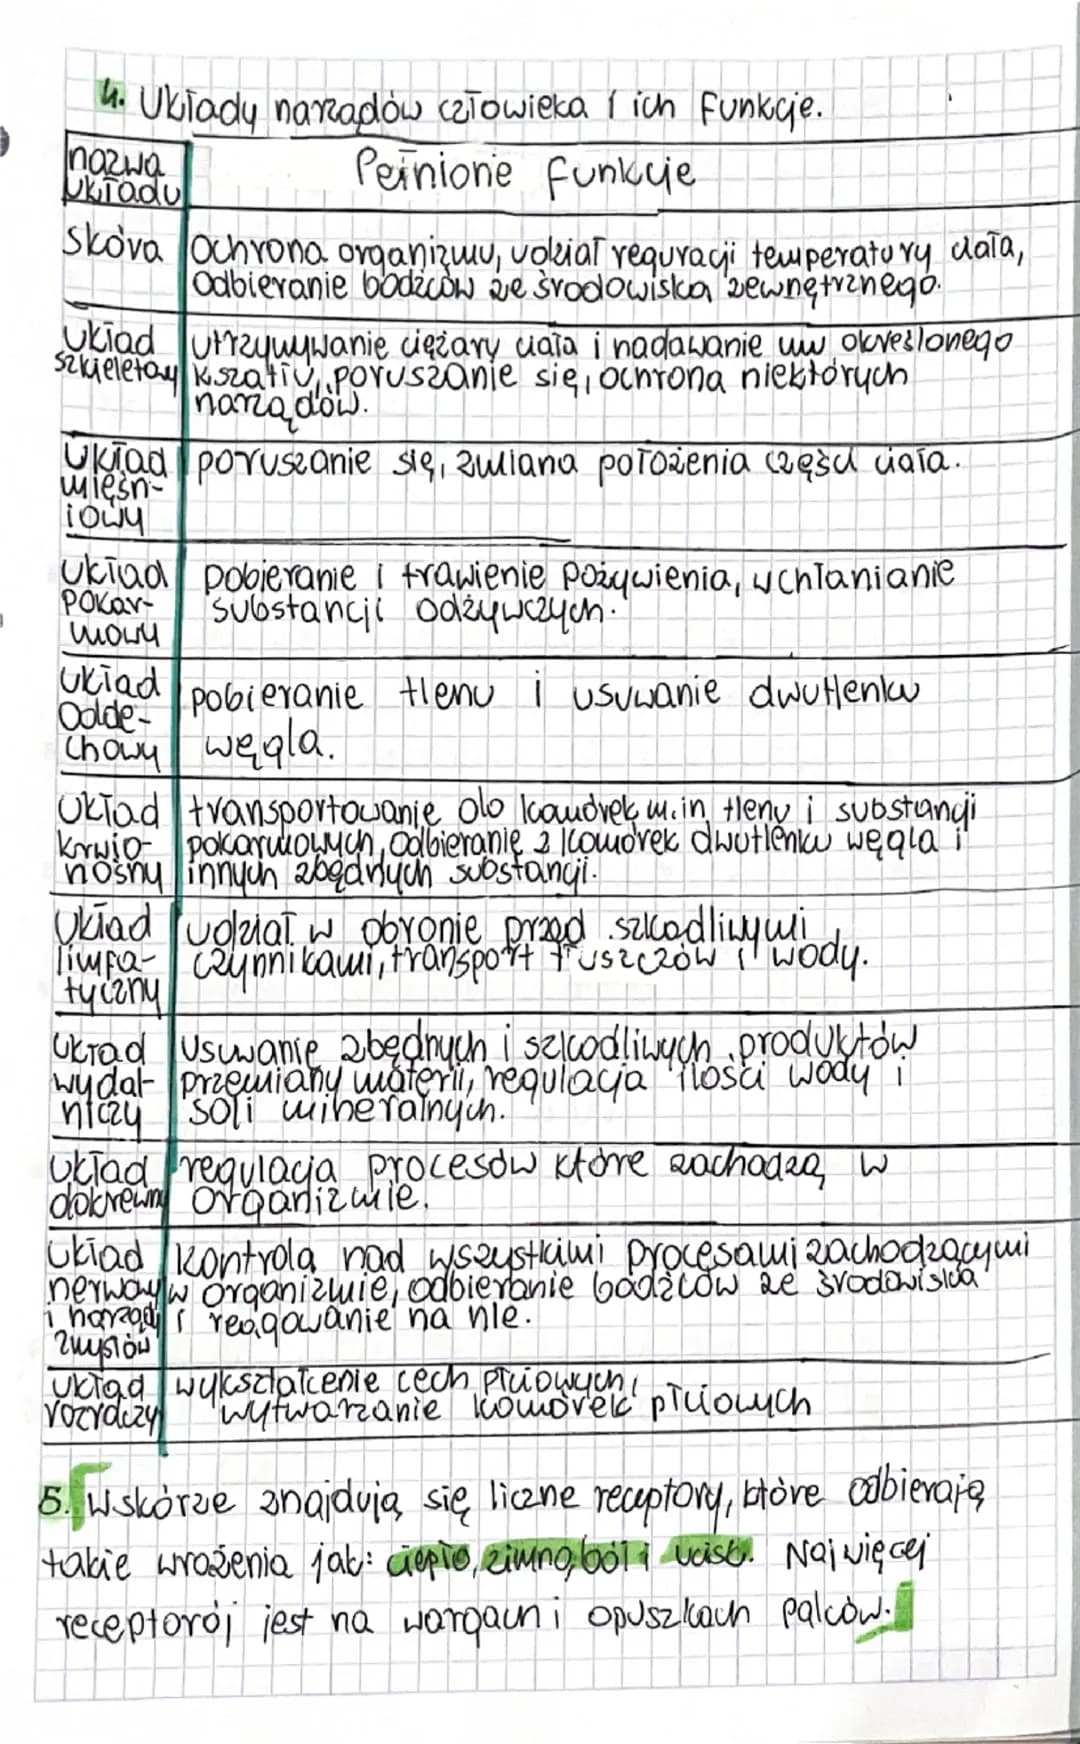 4. Układy narządów człowieka i ich funkcje.
nazwa układu
Pełnione funkcje
skóra
Ochrona organizmu, udział reguracji temperatury ciała,
Odbieranie bodźców ze środowiska zewnętrznego.
Układ
szkieletowy
utrzymywanie ciężary ciała i nadawanie mu określonego
kształtu, poruszanie się, ochrona niektórych
narządów.
Układ
mięśn-
iowy
poruszanie się, zmiana położenia części ciała.
Układ
pokar-
mowy
pobieranie i trawienie pożywienia, wchłanianie
substancji odżywczych.
Układ
Odde-
chowy
pobieranie tlenu i usuwanie dwutlenku
węgla.
Układ
krwio-
nośny
transportowanie do komórek m.in tlenu i substancji
pokarmowych, Odbieranie z komórek dwutlenku węgla i
innych zbędnych substancji.
Układ
limfa-
tyczny
udział w obronie przed szkodliwymi
czynnikami, transport tłuszczów i wody.
Układ
wydal-
niczy
Usuwanie zbędnych i szkodliwych produktów
przemiany materii, regulacja ilości wody i
soli mineralnych.
Układ
dokrewny
regulacja procesów które zachodzą w
organizmie.
Układ
nerwowy
i narządy
zmysłów
kontrola nad wszystkimi procesami zachodzącymi
w organizmie, odbieranie bodźców ze środowiska
i reagowanie na nie.
Układ
rozrodczy
wykształcenie cech płciowych,
wytwarzanie komórek płciowych
5. W skórze znajdują się liczne receptory, które odbierają
takie wrażenia jak: ciepło, zimno, ból i ucisk. Najwięcej
receptorój jest na wargach i opuszkach palców.